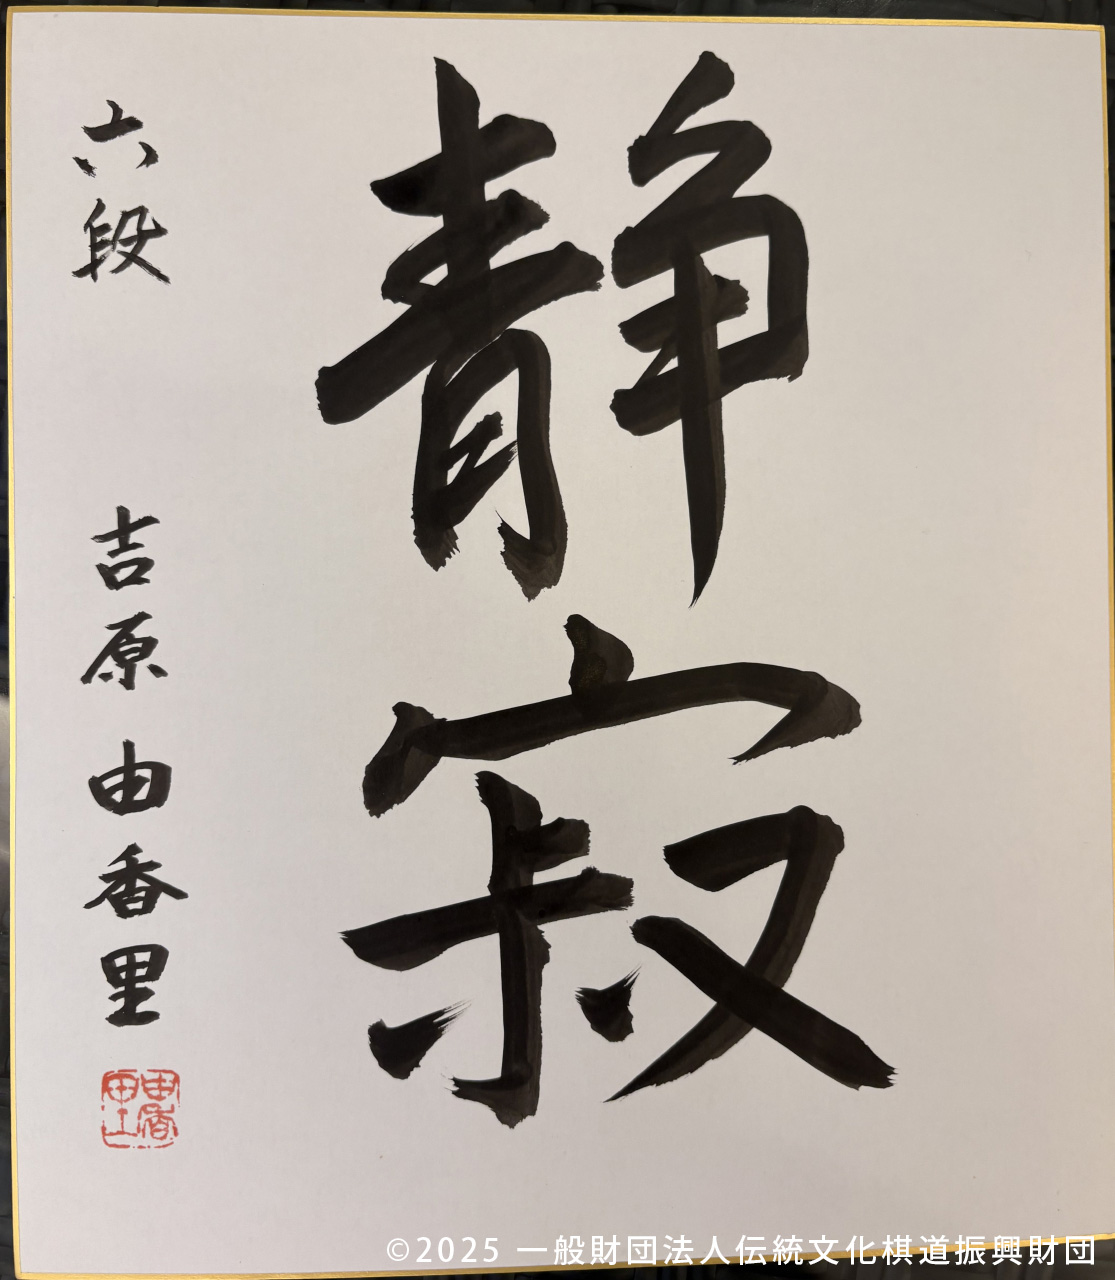 静寂
六段 吉原由香里
由香里
©2025 一般財団法人伝統文化棋道振興財団